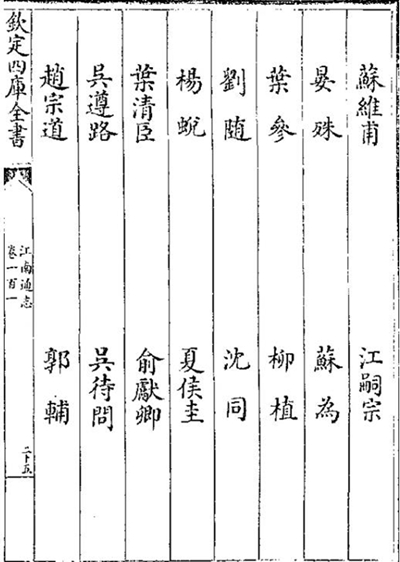 蘇維甫 江嗣宗
晏殊 蘇為
葉參 柳植
劉随 沈同
楊蛻 夏侯圭
葉清臣 俞獻卿
吳遵路 吳待問
趙宗道 郭輔
欽定四庫全書 江南通志 卷一百一 二十五